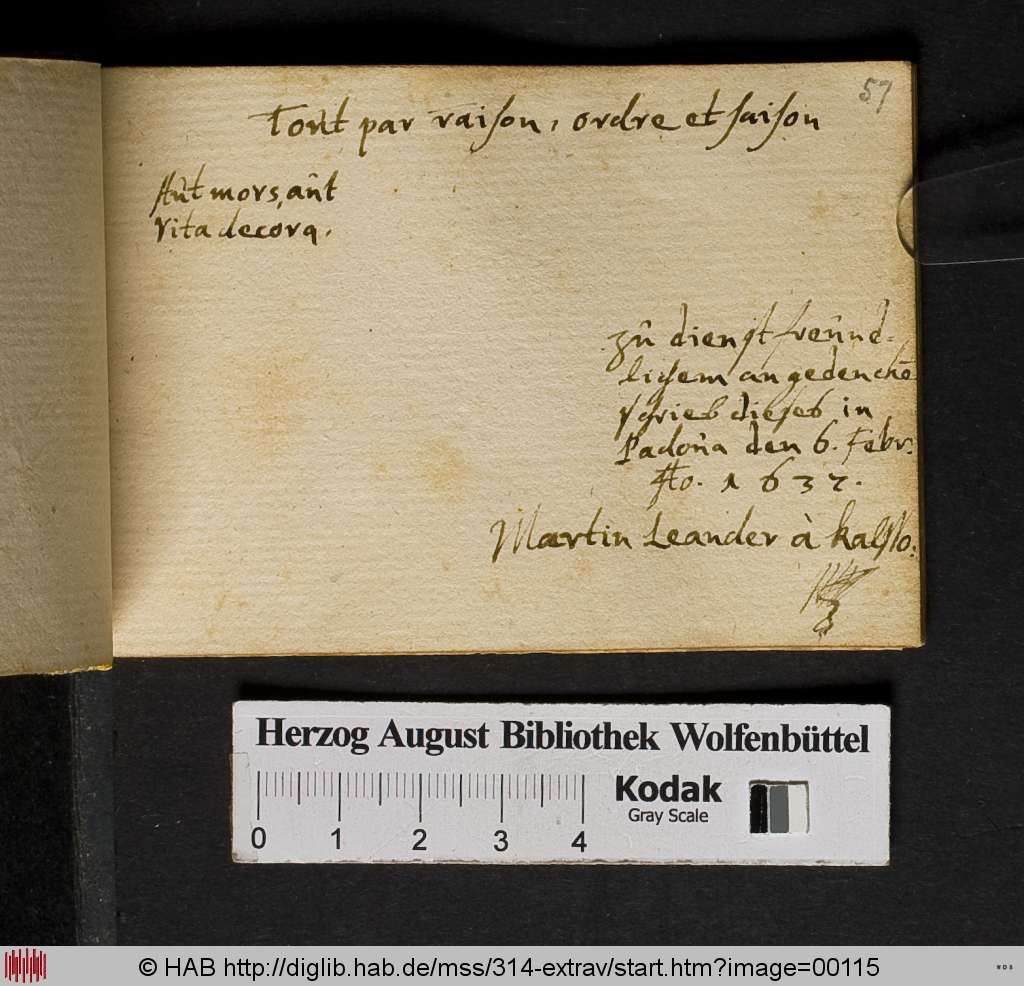 57
Tout par raison, ordre et saison
Aut mors, aut
Vita decora.
zu dienstfreund-
lichem angedenckē
schrieb dieses in
Padoua den 6. Febr:
Ao. 1632.
Martin Leander à
Herzog August Bibliothek Wolfenbüttel
Kodak
Gray Scale
0 1 2 3 4
© HAB http://diglib.hab.de/mss/314-extrav/start.htm?image=00115